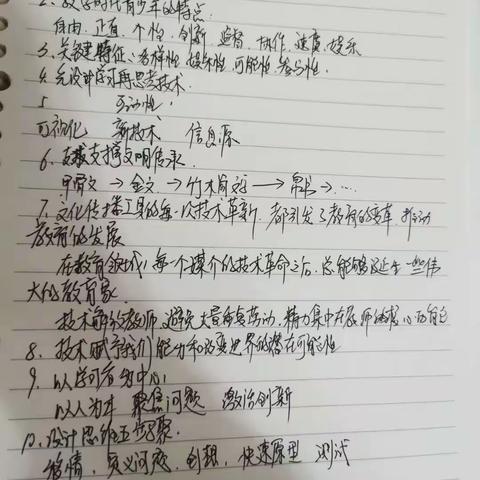 2、数字时代青少年的特点
自由、正直、个性、创新、监督、协作、速度、娱乐
3、关键特征、多样性、娱乐性、可能性、参与性.
4、无设计学习再思考技术.
5 互动性,
可视化 新技术 信息源
6、支撑文明传承.
甲骨文 → 金文 → 竹木简 → 帛书 → ...
7、文化传播工具的每一次技术革新,都引发了教育的变革,推动
教育的发展
在教育领域,每一个媒介的技术革命之后,总能够诞生一些伟
大的教育家.
技术解放教师,避免大量重复劳动,精力集中在教师
8、技术赋予我们能力和改变世界的潜在可能性
9、以学习者为中心:
以人为本 聚焦问题 激活创新
10、设计思维五步骤.
移情、定义问题、创想、快速原型 测试